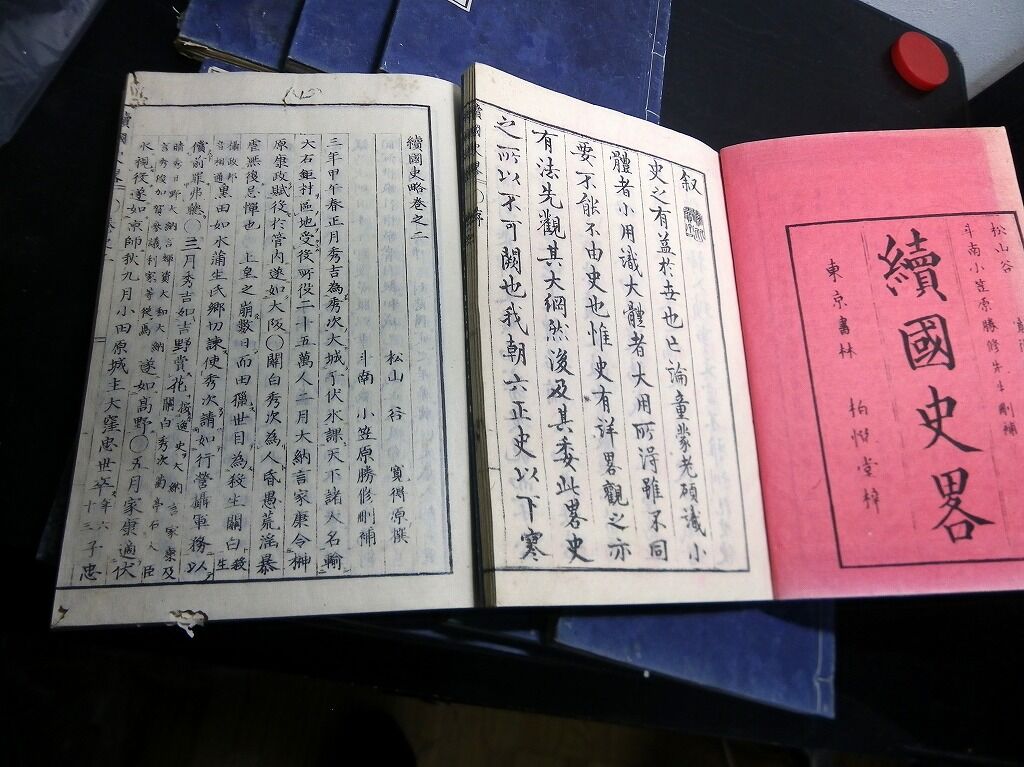 松山谷
斗南小笠原勝修先生刪補
續國史畧
東京書林
柏悅堂梓
叙
史之有益於世也亡論童蒙老碩識小
體者小用識大體者大用所得雖不同
要不能不由史也惟史有詳畧觀之亦
有法先觀其大綱然後及其委此畧史
之所以不可闕也我朝六正史以下寒
續國史略卷之二
松山 谷 寬得原撰
斗南 小笠原勝修刪補
三年甲午春正月秀吉為秀次大城于伏水課天下諸大名輸
大石鉅材區地受役所役二十五萬人二月大納言家康令榊
原康政賦役於管內遂如大阪〇關白秀次為人昏愚荒淫暴
虐無復忌憚也 上皇之崩數日而田獵世目為殺生關白
殺生
攝政
音相通
黑田如水蒲生氏鄉切諫使秀次請如行營攝軍務以
償前罪弗聽〇三月秀吉如吉野賞花
關白秀次菊亭右大臣
遂如高野〇五月家康適伏
水視役遂如京師秋九月小田原城主大窪忠世卒
年六十三
子忠